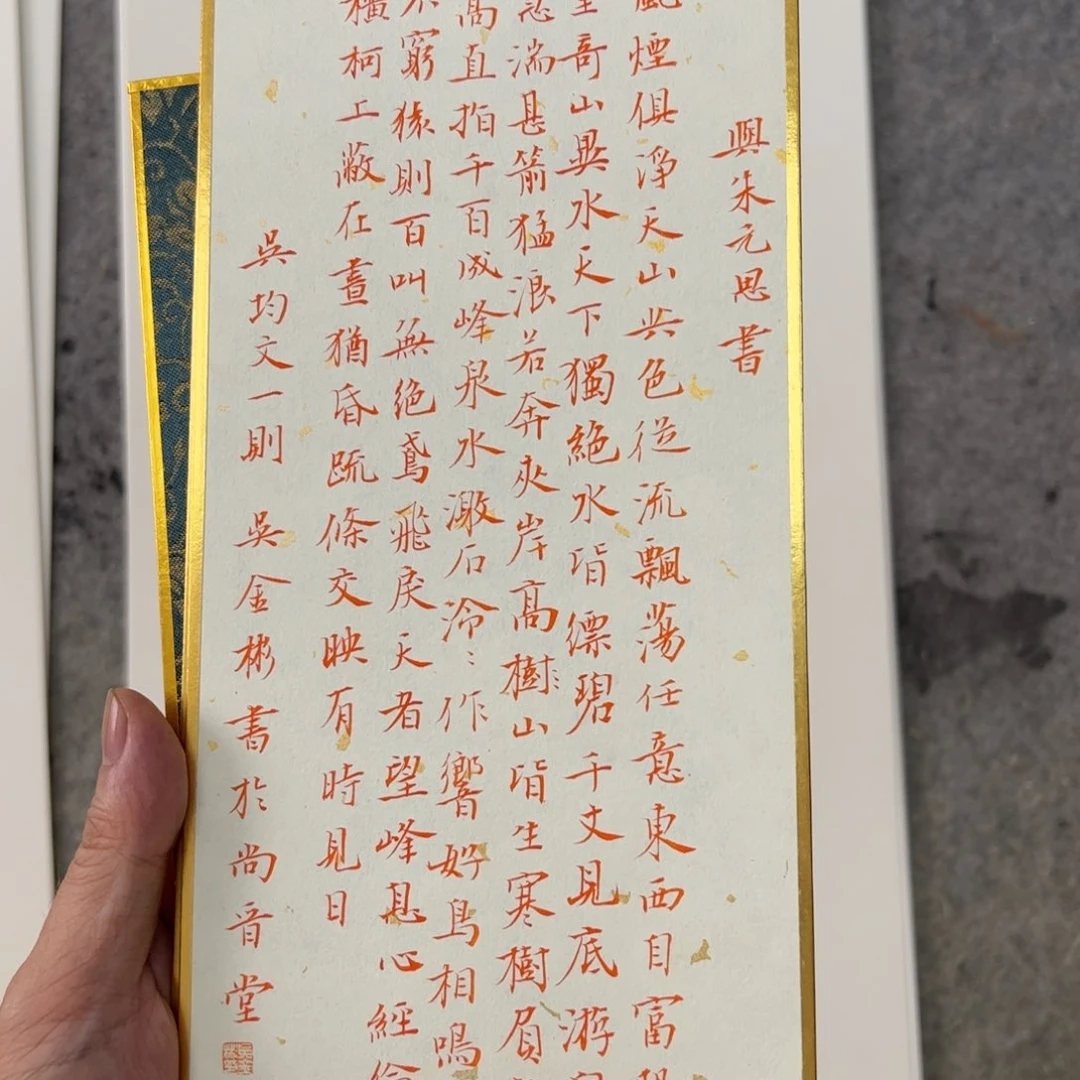 與朱元思書
風煙俱淨天山共色從流飄蕩任意東西自富
至奇山異水天下獨絕水皆縹碧千丈見底游
急湍甚箭猛浪若奔夾岸高樹山皆生寒樹負
高直指千百成峰泉水激石泠〻作響好鳥相鳴
不窮猿則百叫無絕鳶飛戾天者望峰息心經綸
橫柯上蔽在晝猶昏疏條交映有時見日
吳均文一則 吳金彬書於尚音堂